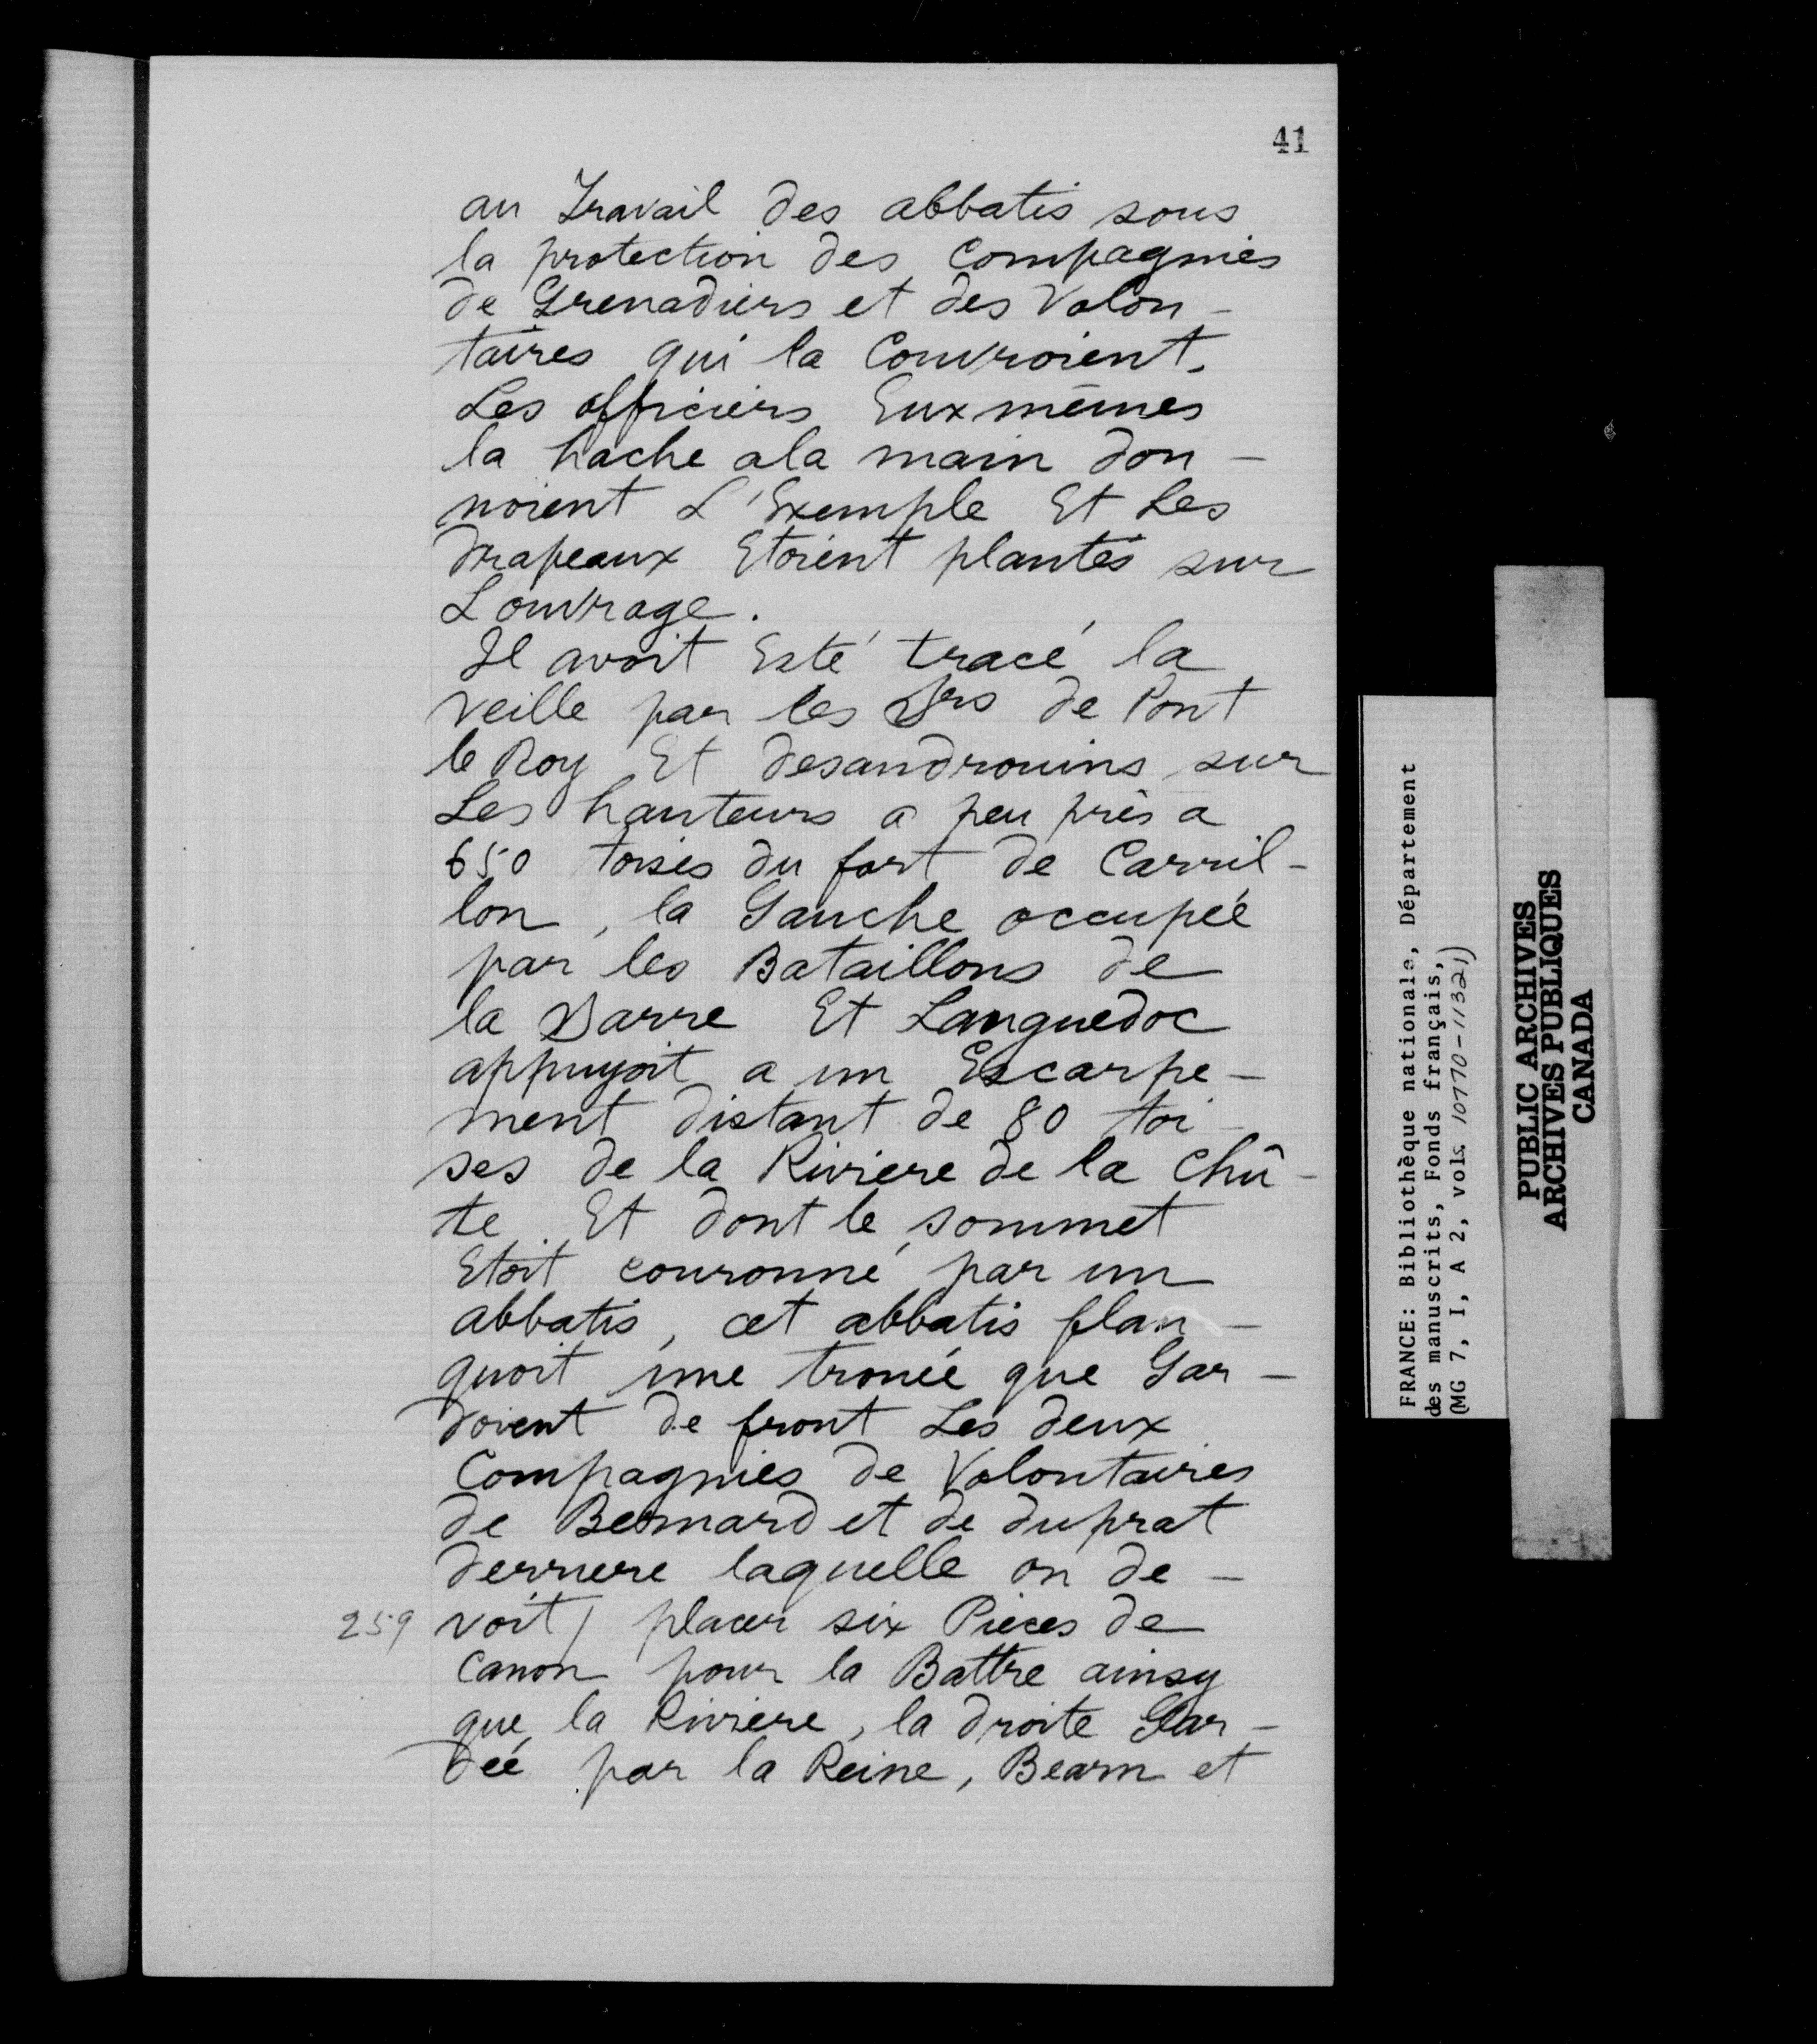 41
au Travail des abbatis sous
la protection des Compagnies
de Grenadiers et des Volon-
taires qui la Couvroient.
Les officiers Eux mêmes
la hache a la main don-
noient L'Exemple Et Les
drapeaux Etoient plantés sur
L'ouvrage.
Il avoit Esté tracé la
veille par les Srs de Pont
le Roy Et desandrouins sur
Les hauteurs a peu près a
650 toises du fort de Carril-
lon, la Gauche occupée
par les Bataillons de
la Sarre Et Languedoc
appuyoit a un Escarpe-
ment distant de 80 toi-
ses de la Riviere de la Chû-
te Et dont le sommet
Etoit couronné par un
abbatis, cet abbatis flan-
quoit une trouée que Gar-
doient de front Les deux
Compagnies de Volontaires
de Bernard et de duprat
derriere laquelle on de-
259 voit / placer six Pieces de
Canon pour la Battre ainsy
que la Riviere, la droite Gar-
dée par la Reine, Bearn et
FRANCE: Bibliothèque nationale, Département
des manuscrits, Fonds français,
(MG 7, I, A 2, vols. 10770-11321)
PUBLIC ARCHIVES
ARCHIVES PUBLIQUES
CANADA